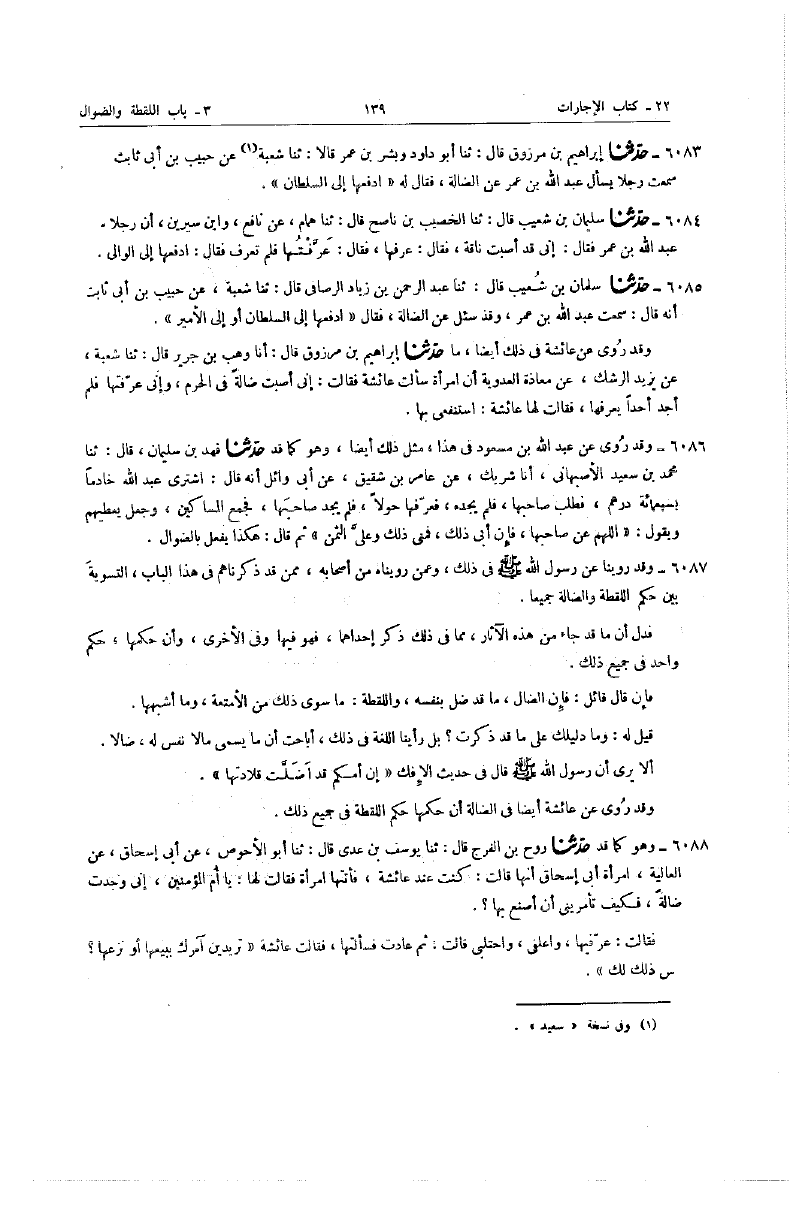 ٢٢ - كتاب الإجارات ١٣٩ ٣ - باب اللقطة والضوال
٦٠٨٣ - حدثنا إبراهيم بن مرزوق قال : ثنا أبو داود وبشر بن عمر قالا : ثنا شعبة(١) عن حبيب بن أبى ثابت
سمعت رجلا يسأل عبد الله بن عمر عن الضالة ، فقال له « ادفعها إلى السلطان » .
٦٠٨٤ - حدثنا سليمان بن شعيب قال : ثنا الخصيب بن ناصح قال : ثنا همام ، عن نافع ، وابن سيرين ، أن رجلا .
عبد الله بن عمر فقال : إنى قد أصبت ناقة ، فقال : عرفها ، فقال : عَرَّفْتُها فلم تعرف فقال : ادفعها إلى الوالى .
٦٠٨٥ - حدثنا سلمان بن شُعيب قال : ثنا عبد الرحمن بن زياد الرصافى قال : ثنا شعبة ، عن حبيب بن أبى ثابت
أنه قال : سمعت عبد الله بن عمر ، وقد سئل عن الضالة ، فقال « ادفعها إلى السلطان أو إلى الأمير » .
وقد رُوى عن عائشة فى ذلك أيضا ، ما حدثنا إبراهيم بن مرزوق قال : أنا وهب بن جرير قال : ثنا شعبة ،
عن يزيد الرشك ، عن معاذة العدوية أن امرأة سألت عائشة فقالت : إنى أصبت ضالةً فى الحرم ، وإنى عرّفتها فلم
أجد أحداً يعرفها ، فقالت لها عائشة : استنفعى بها .
٦٠٨٦ - وقد رُوى عن عبد الله بن مسعود فى هذا ، مثل ذلك أيضا ، وهو كما قد حدثنا فهد بن سليمان ، قال : ثنا
محمد بن سعيد الأصبهانى ، أنا شريك ، عن عامر بن شقيق ، عن أبى وائل أنه قال : اشترى عبد الله خادماً
بسبعمائة درهم ، فطلب صاحبها ، فلم يجده ، فعرّفها حولاً ، فلم يجد صاحبَها ، فجمع المساكين ، وجعل يعطيهم
ويقول : « اللهم عن صاحبها ، فإن أبى ذلك ، فمنى ذلك وعلىَّ الثمن » ثم قال : هكذا يفعل بالضوال .
٦٠٨٧ - وقد روينا عن رسول الله ﷺ فى ذلك ، وعمن رويناه من أصحابه ، ممن قد ذكرناهم فى هذا الباب ، التسويةَ
بين حكم اللقطة والضالة جميعا .
فدل أن ما قد جاء من هذه الآثار ، مما فى ذلك ذكر إحداهما ، فهو فيها وفى الأخرى ، وأن حكمها ، حكم
واحد فى جميع ذلك .
فإن قال قائل : فإن الضال ، ما قد ضل بنفسه ، واللقطة : ما سوى ذلك من الأمتعة ، وما أشبهها .
قيل له : وما دليلك على ما قد ذكرت ؟ بل رأينا اللغة فى ذلك ، أباحت أن ما يسمى مالا نفس له ، ضالا .
ألا يرى أن رسول الله ﷺ قال فى حديث الإفك « إن أمكم قد أضَلَّت قلادتها » .
وقد رُوى عن عائشة أيضا فى الضالة أن حكمها حكم اللقطة فى جميع ذلك .
٦٠٨٨ - وهو كما قد حدثنا روح بن الفرج قال : ثنا يوسف بن عدى قال : ثنا أبو الأحوص ، عن أبى إسحاق ، عن
العالية ، امرأة أبى إسحاق أنها قالت : كنت عند عائشة ، فأتتها امرأة فقالت لها : يا أم المؤمنين ، إنى وجدت
ضالةً ، فكيف تأمرينى أن أصنع بها ؟ .
فقالت : عرّفيها ، واعلفى ، واحتلبى قالت : ثم عادت فسألتها ، فقالت عائشة « تريدين آمرك ببيعها أو نزعها ؟
س ذلك لك » .
(١) وفى نسخة « سعيد » .